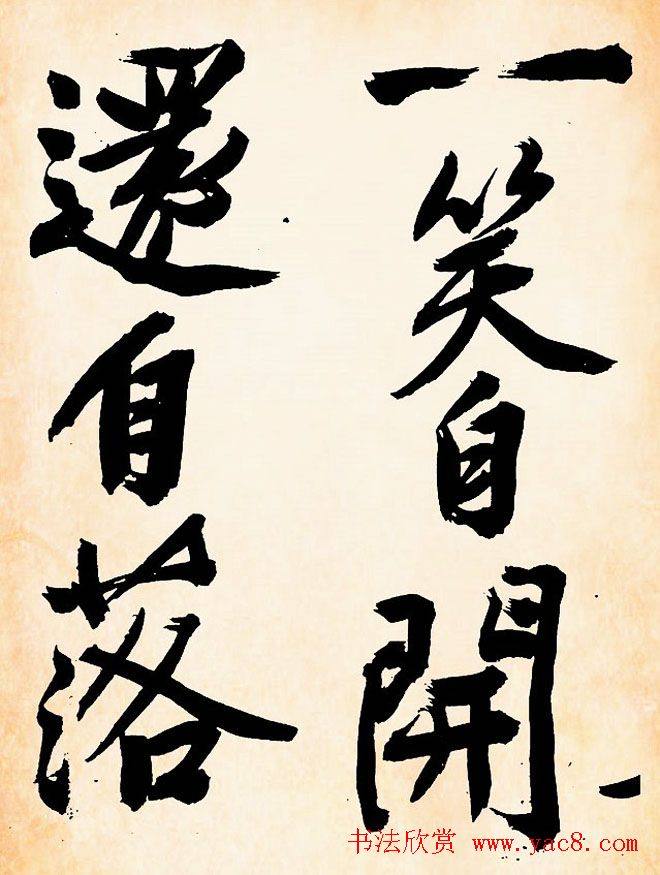 一笑自開
還自落
书法欣赏 www.yac8.com